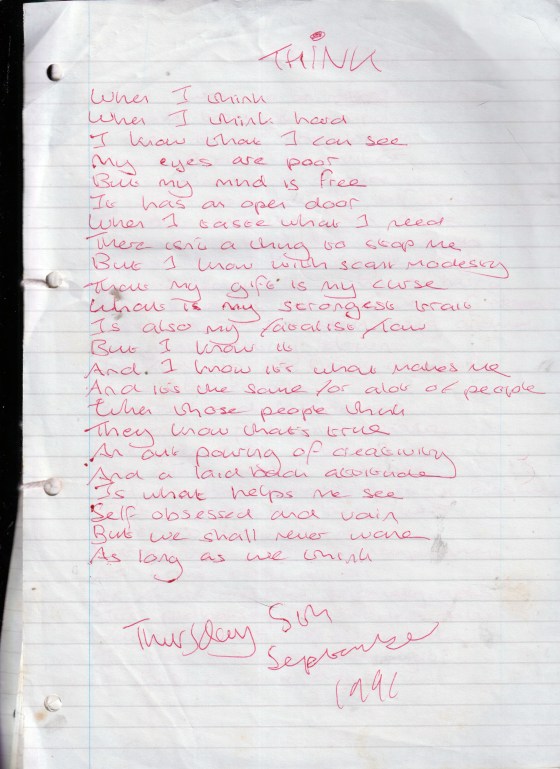 THiNK
When I think
When I think hard
I know what I can see
My eyes are poor
But my mind is free
It has an open door
When I taste what I need
There isn't a thing to stop me
But I know with scant modesty
That my gift is my curse
What is my strongest trait
Is also my fatalist flaw
But I know it
And I know it's what makes me
And it's the same for alot of people
When those people think
They know that's true
An out pouring of creativity
And a laid back attitude
Is what helps me see
Self obsessed and vain
But we shall never wane
As long as we think
Thursday 5th
September
1991